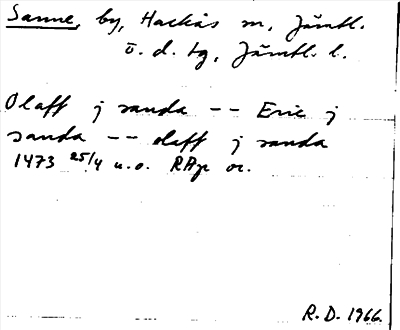 Sanne, by, Hackås sn, Jämtl.
ö. d. tg, Jämtl. l.
Olaff j sanda -- Eric j
sanda -- olaff j sanda
1473 25/4 u.o. RAp or.
R.D. 1966.